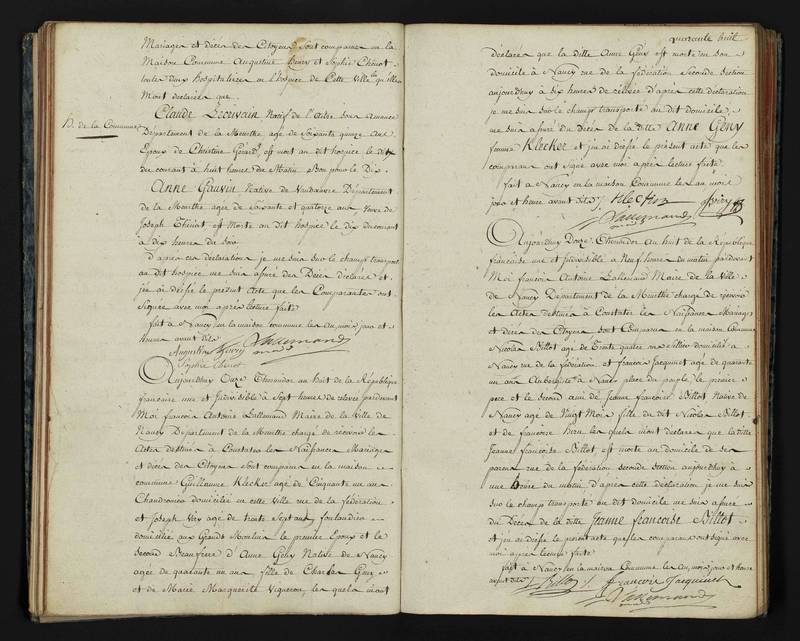 Mariages et décès des Citoyens sont comparus en la
Maison Commune Augustine Henry et Sophie Thériot
toutes deux hospitalières en l'hospice de cette ville qu'elles
M'ont déclarées que
H. de la Commune
Claude Lecrivain Natif de
Département de la Meurthe agé de Soixante quinze ans
Epoux de Christine Gérard, est mort au dit hospice le dix
du courant à huit heures du Matin
Anne Gauvin Native de Département
de la Meurthe agée de Soixante et quatorze ans, Veuve de
Joseph est Morte au dit hospice le dix du courant
à dix heures du soir
d'après cette déclaration je me suis sur le champ transporté
au dit hospice me suis assuré des Décès déclarés et
j'en ai dressé le présent Acte que les Comparantes ont
Signées avec moi après lecture faite
fait à Nancy en la maison commune les an, mois, jour et
heures avant dits
Augustine Henry Lallemand
Sophie
Aujourdhuy Onze Thermidor an huit de la République
française une et Indivisible à Sept heures de relevée pardevant
Moi françois Antoine Lallemand Maire de la Ville de
Nancy Département de la Meurthe chargé de recevoir les
Actes destinés à Constater les Naissances Mariages
et décès des Citoyens sont comparus en la maison
commune Guillaume Klecker agé de Cinquante un ans
Chaudronier domicilié en cette Ville rue de la fédération
et Joseph agé de trente Sept ans,
domicilié aux Grands Moulins le premier Epoux et le
second Beaufrère d'Anne Geny Native de Nancy
agée de quarante un ans fille de Charles Geny
et de Marie Marguerite Vigneron, les quels m'ont
quarante huit
déclarés que la ditte Anne Geny est morte en son
domicile à Nancy rue de la fédération Seconde section
aujourdhuy à six heures de d'après cette déclaration
je me suis sur le champ transporté au dit domicile,
me suis assuré du Décès de la ditte Anne Geny
femme Klecker et j'en ai dressé le présent acte que les
comparans ont signé avec moi après lecture faite
fait à Nancy en la maison Commune les an mois
jour et heure avant dits
Lallemand
Aujourdhuy Douze Thermidor an huit de la République
française une et indivisible à Neuf heures du matin pardevant
Moi françois Antoine Lallemand Maire de la Ville
de Nancy Département de la Meurthe chargé de recevoir
les Actes destinés à Constater les Naissances Mariages
et décès des Citoyens sont Comparus en la maison Commune
Nicolas Billot agé de Trente quatre ans domicilié à
Nancy rue de la fédération et françois Jacquinet agé de quarante
un ans Aubergiste à Nancy place du peuple, le premier
père et le second ami de Jeanne françoise Billot Native de
Nancy agée de Vingt Mois fille du dit Nicolas Billot
et de françoise les quels m'ont declarés que la ditte
Jeanne françoise Billot, est morte au domicile de ses
parens rue de la fédération seconde section aujourdhuy à
une heure du matin d'après cette déclaration je me suis
sur le champ transporté au dit domicile me suis assuré
du Décès de la ditte Jeanne françoise Billot
et j'en ai dressé le present acte que les comparans ont signé avec
moi après lecture faite
fait à Nancy en la maison Commune les an, mois jour et heure
avant dits Billot françois Jacquinet
Lallemand